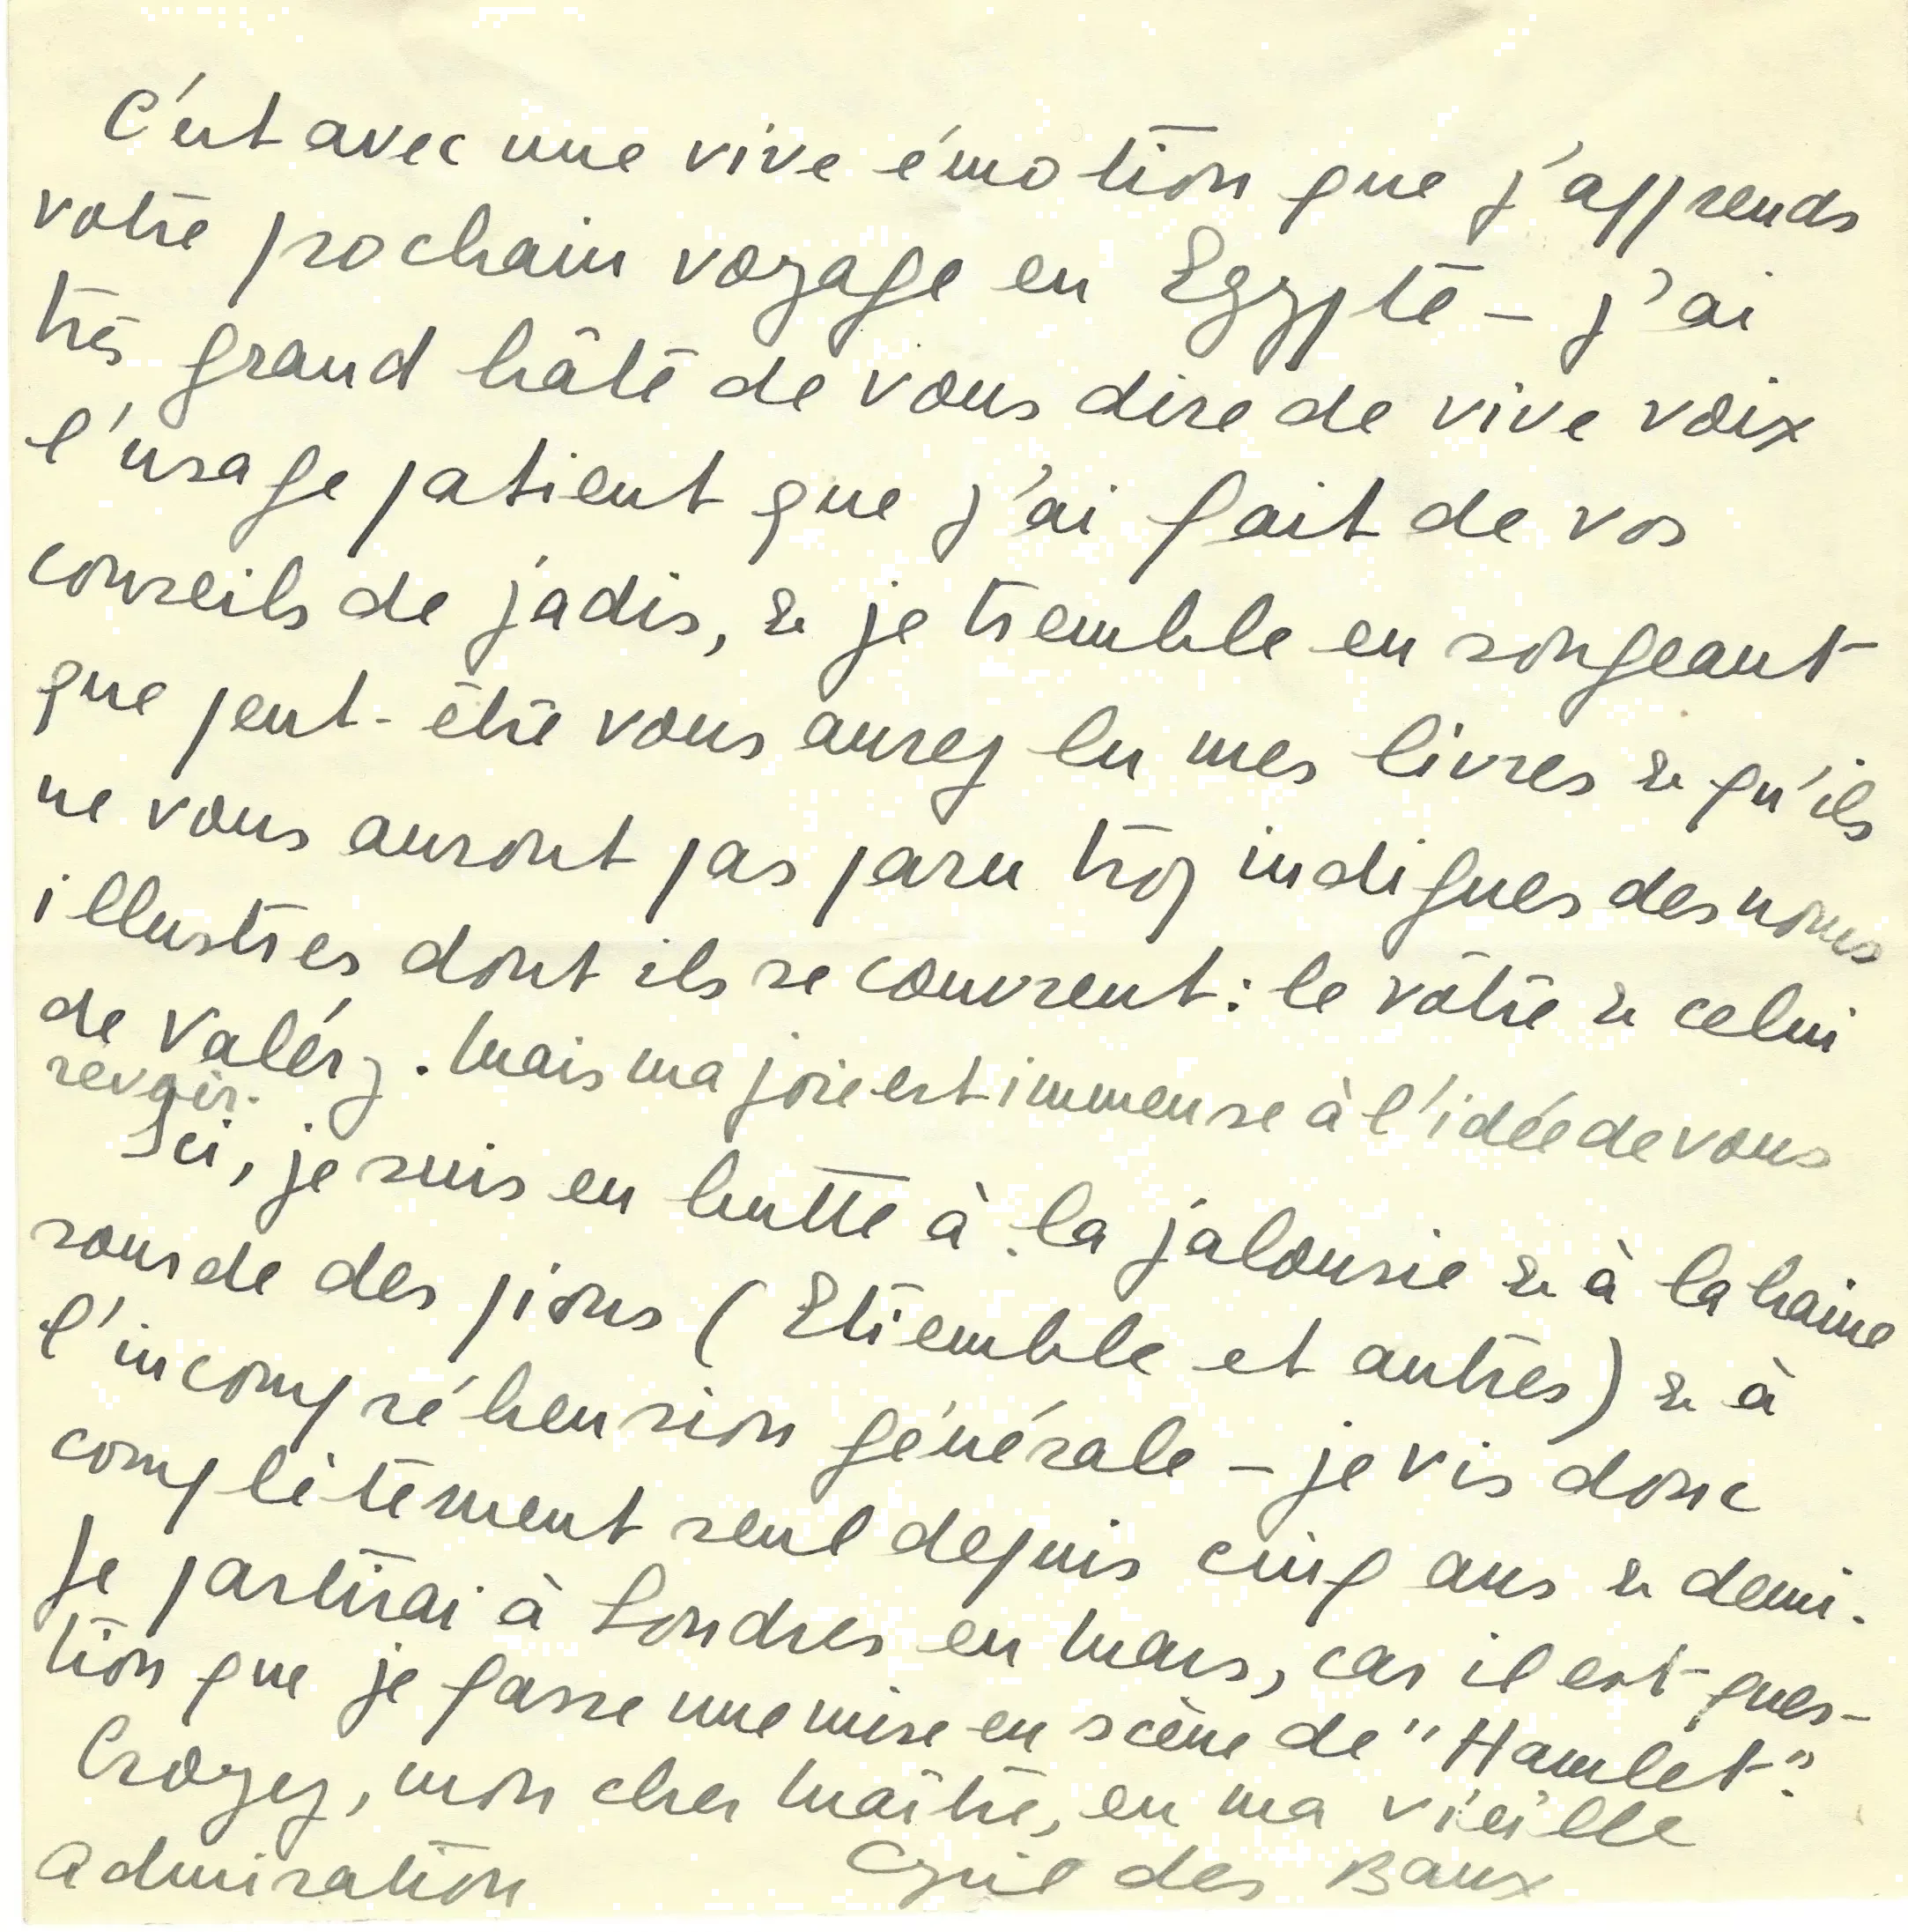 C'est avec une vive émotion que j'apprends
votre prochain voyage en Egypte – j'ai
très grand hâte de vous dire de vive voix
l'usage patient que j'ai fait de vos
conseils de jadis, & je tremble en songeant
que peut-être vous aurez lu mes livres & qu'ils
ne vous auront pas paru trop indignes des noms
illustres dont ils se couvrent : le vôtre & celui
de Valéry. Mais ma joie est immense à l'idée de vous
revoir.
Ici, je suis en butte à la jalousie & à la haine
sourde des pions (Etiemble et autres) & à
l'incompréhension générale – je vis donc
complètement seul depuis cinq ans & demi.
Je partirai à Londres en Mars, car il est ques-
tion que je fasse une mise en scène de "Hamlet".
Croyez, mon cher Maître, en ma vieille
admiration
Cyril des Baux